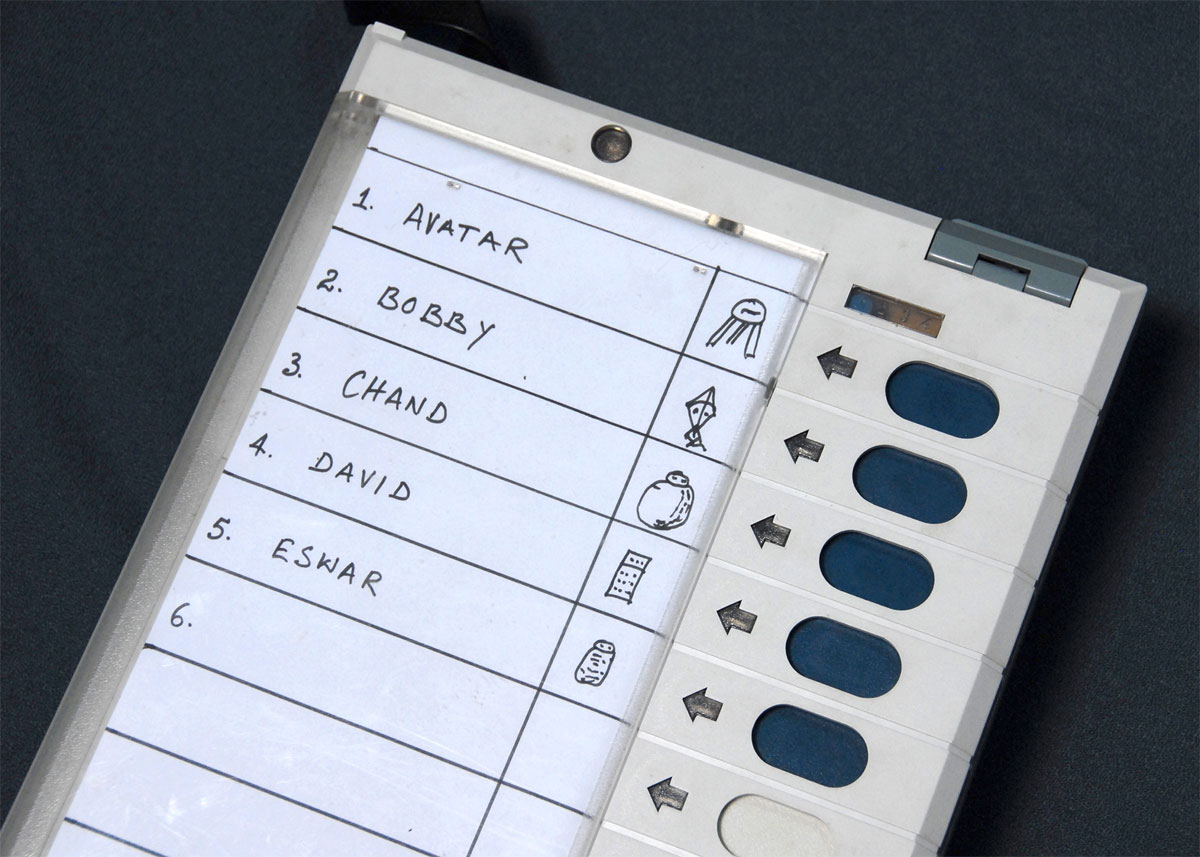 1. AVATAR
2. BOBBY
3. CHAND
4. DAVID
5. ESWAR
6.